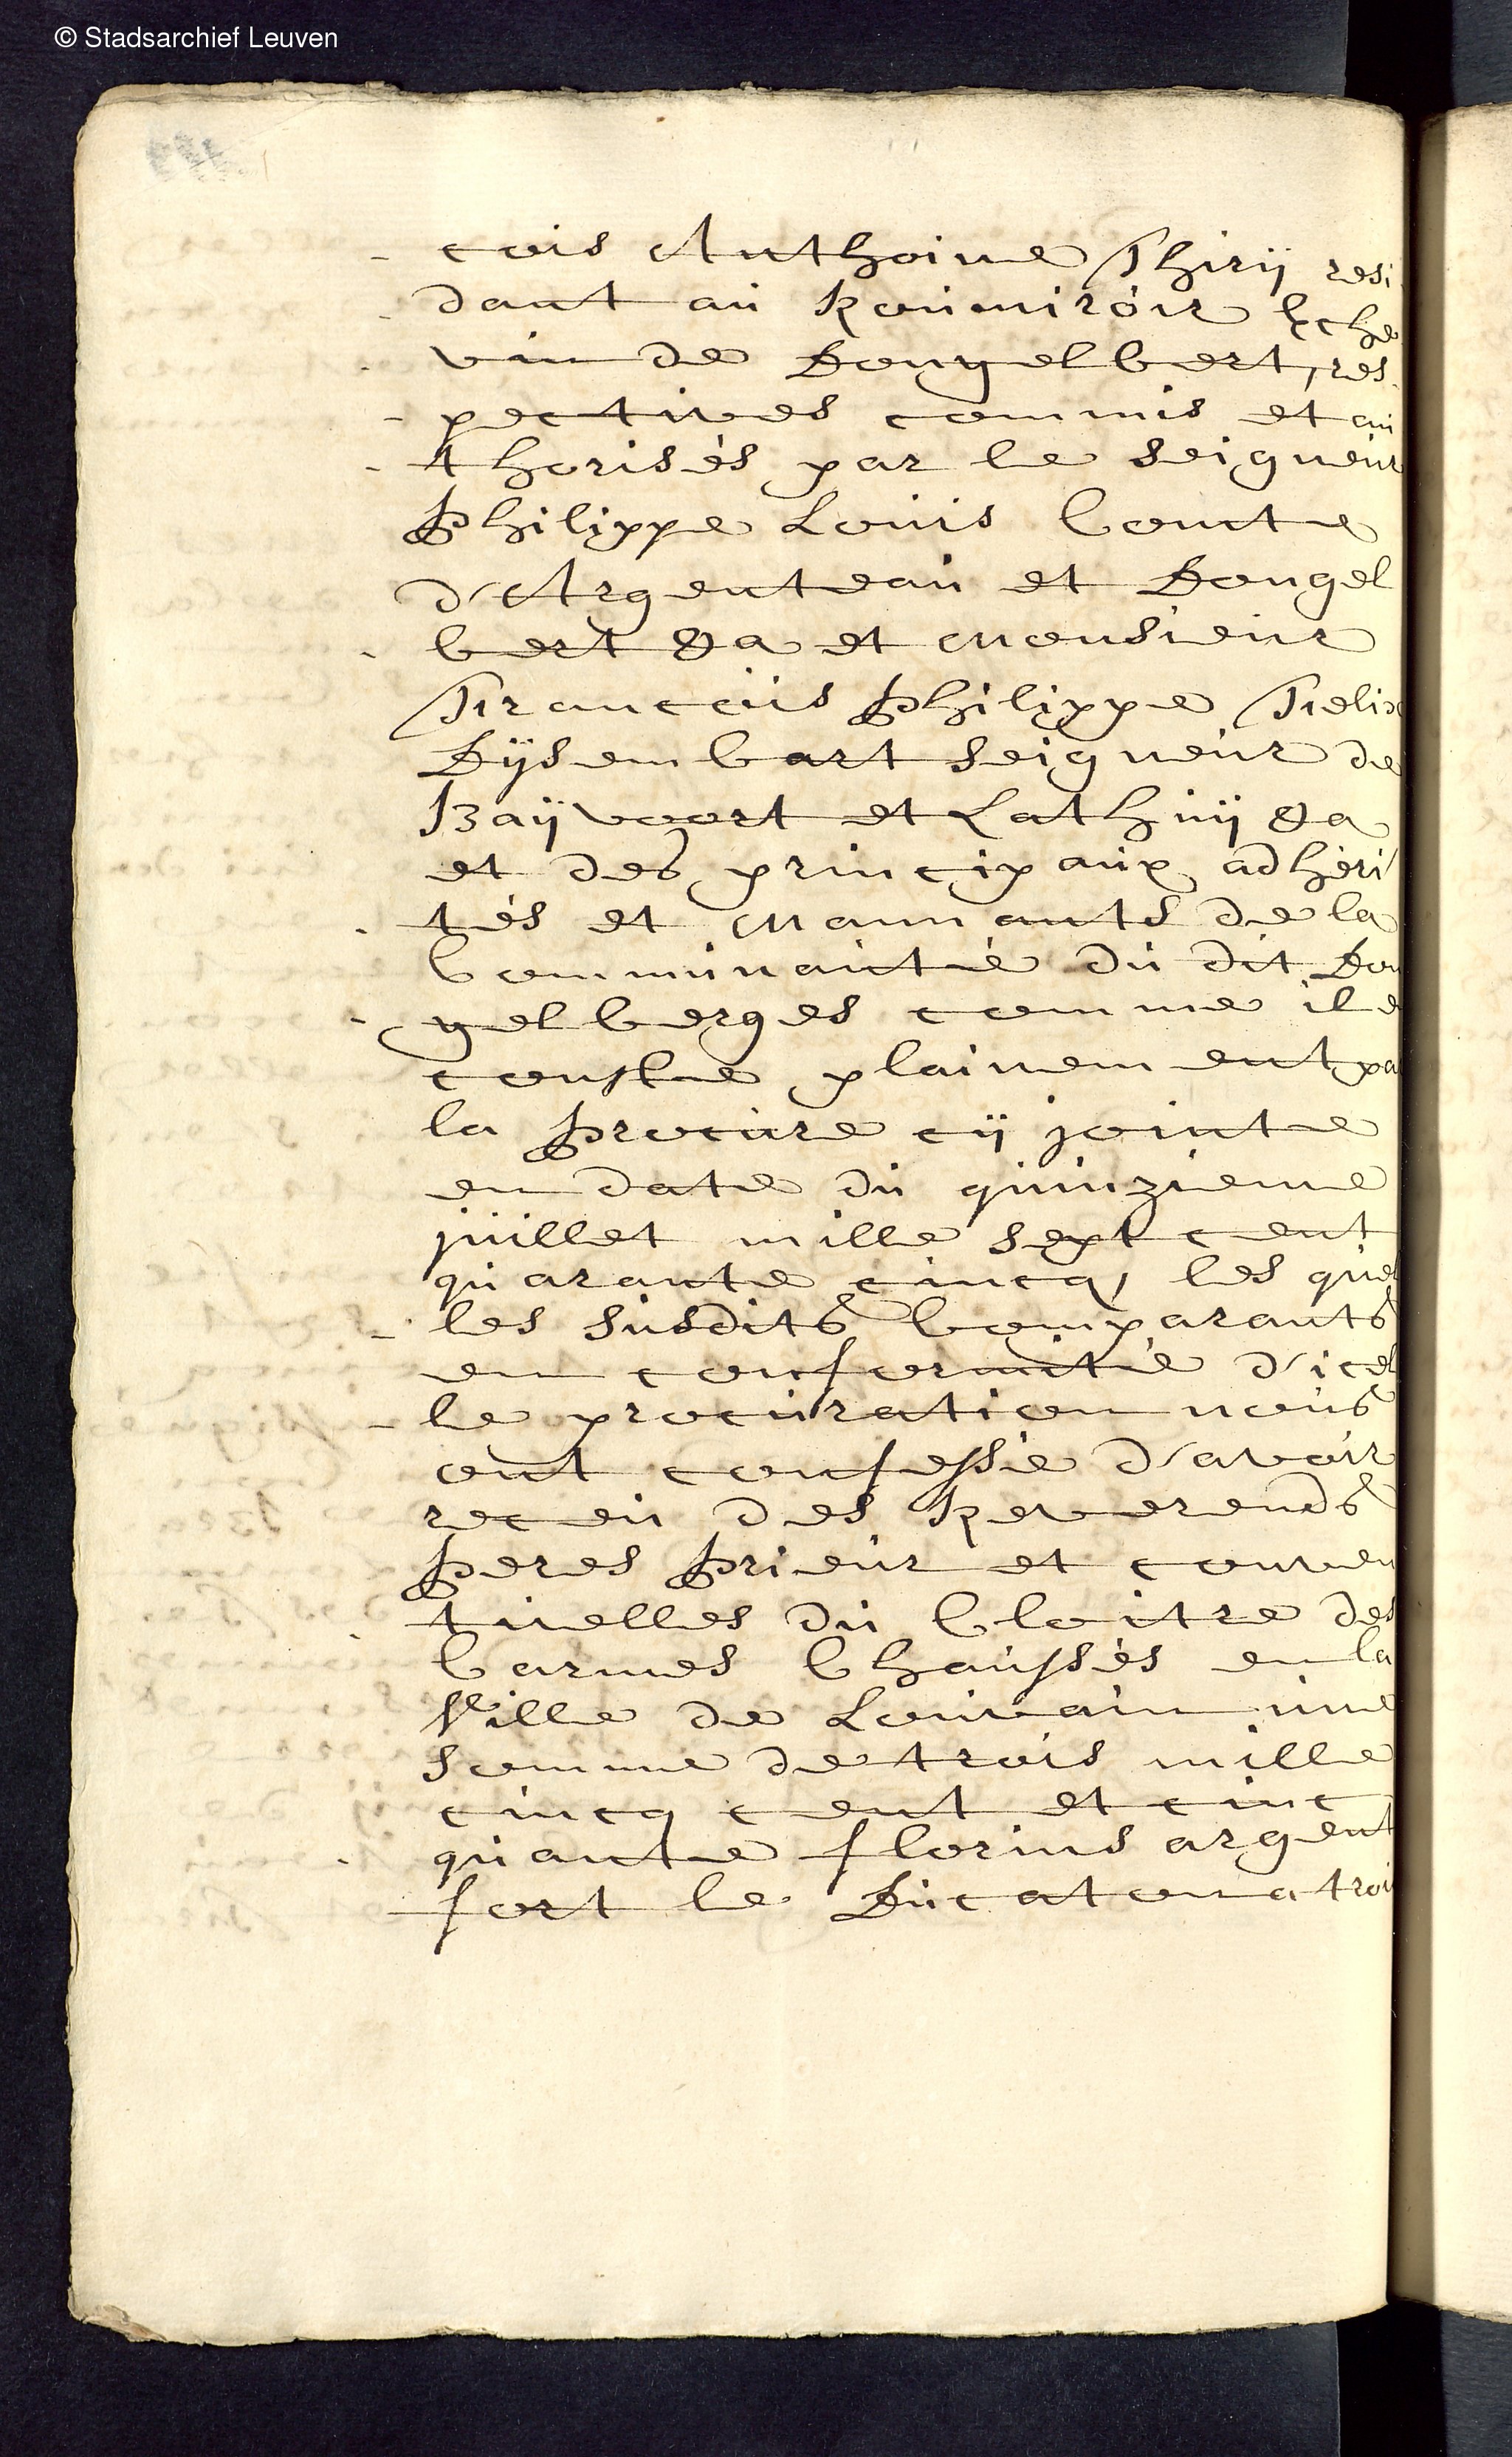 © Stadsarchief Leuven
cois Anthoine Thirÿ resi
dant au Roumiroir Eche
vin de Dongelbert, res
pectives commis et au
thorisés par le seigneur
Philippe Louis Comte
d'Argenteau et Dongel
bert &a et Monsieur
Francois Philippe Felix
Dÿsembart seigneur de
Baÿvoort et Lathuÿ &a
et des principaux adhéri
tés et Mannants de la
Communauté du dit Don
gelberges comme il
conste plainement par
la Procure cÿ jointe
en date du quinzieme
juillet mille sept cent
quarante cincq, les quel
les susdits Comparants
en conformité d'icel
le procuration nous
ont confessé d'avoir
receu des Reverends
Peres Prieur et conven
tuelles du Cloitre des
Carmes Chaussés en la
Ville de Louvain une
somme de trois mille
cincq cent et cinc
quante florins argent
fort le Ducaton a trois